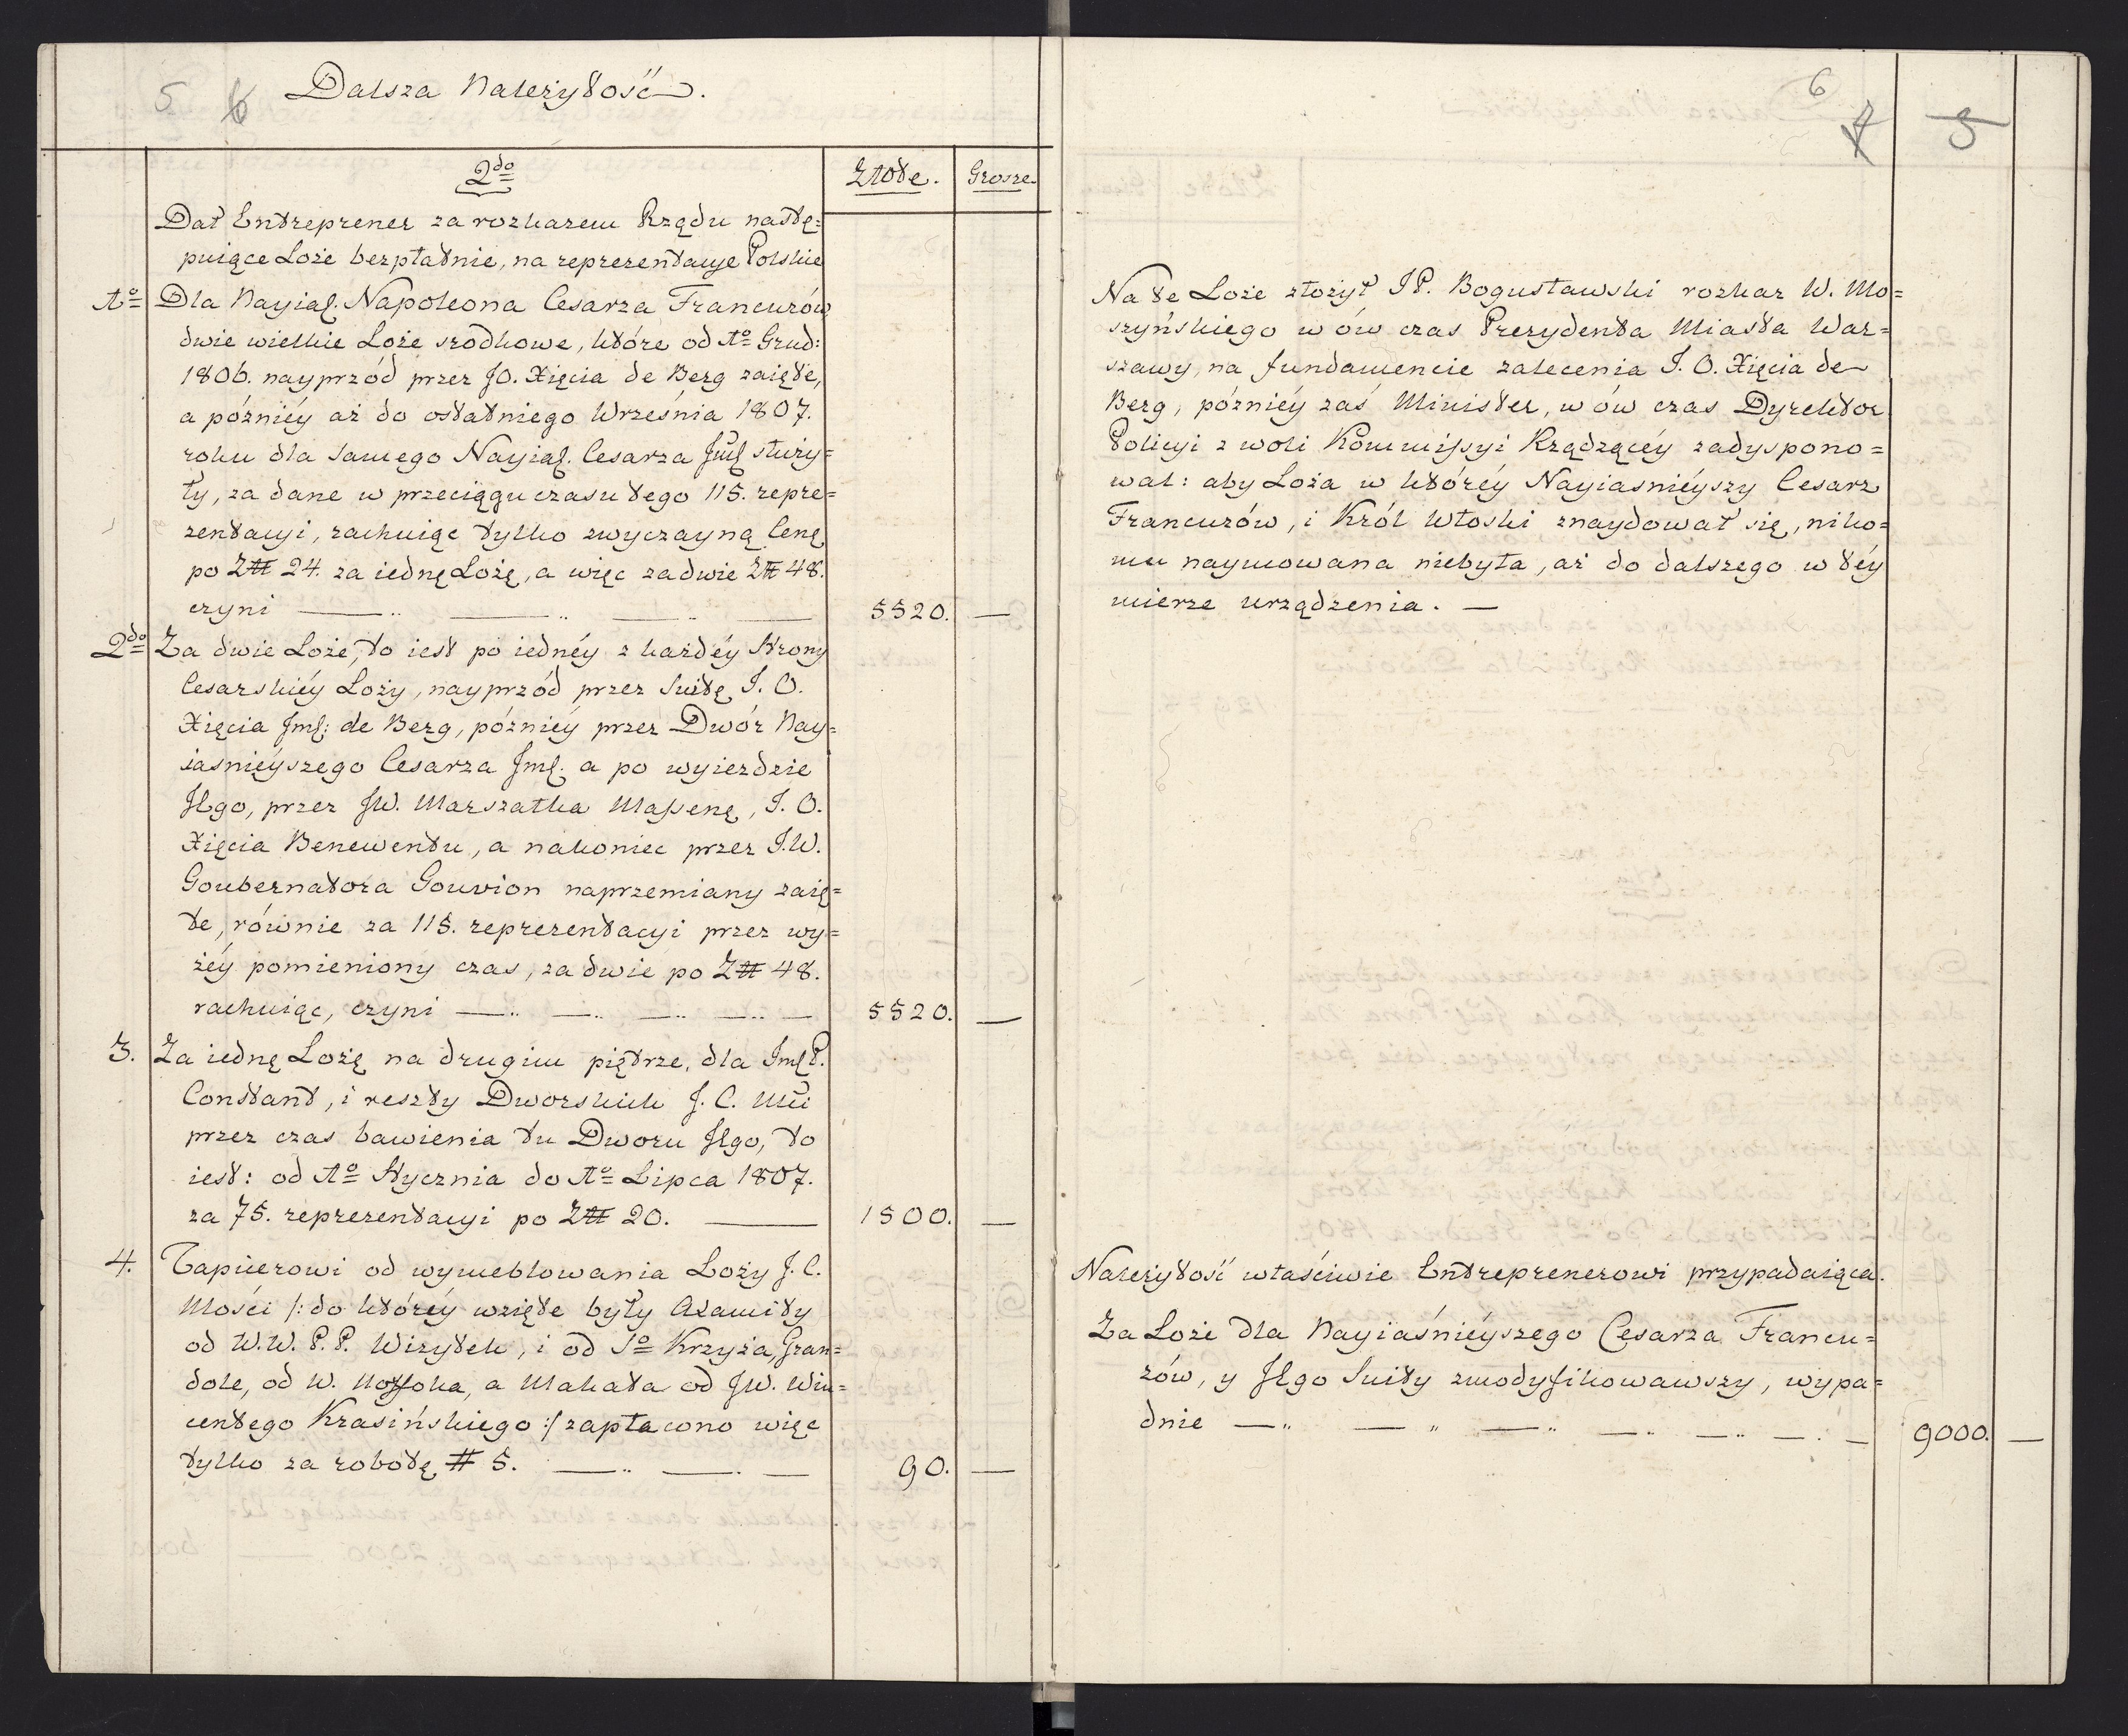 5 6 Dalsza Należytość.
2do
Złote. Grosze.
Dał Entreprener za rozkazem Rządu nastę=
puiące Loże bezpłatnie, na reprezentacye Polskie
1o Dla Nayiaś. Napoleona Cesarza Francuzów
dwie wielkie Loże srodkowe, które od 1o Grud:
1806. nayprzód przez JO. Xięcia de Berg zaięte,
a późniéy aż do ostatniego Września 1807.
roku dla samego Nayiaś. Cesarza Jmć służy=
ły, za dane w przeciągu czasu tego 115. repre=
zentacyi, rachuiąc tylko zwyczayną Cenę
po Zł 24. za iednę Lożę, a więc za dwie Zł 48.
czyni — 5520. —
2do Za dwie Loże, to iest po iednéy z każdéy strony
Cesarskiéy Loży, nayprzód przez Suitę J. O.
Xięcia Jmć: de Berg, późniéy przez Dwór Nay=
iasniéyszego Cesarza Jmć. a po wyieździe
Jego, przez JW. Marszałka Massenę, J. O.
Xięcia Benewentu, a nakoniec przez J.W.
Goubernatora Gouvion naprzemiany zaię=
te, równie za 115. reprezentacyi przez wy=
żéy pomieniony czas, za dwie po Zł 48.
rachuiąc, czyni — 5520. —
3. Za iednę Lożę na drugim piętrze, dla JmćP.
Constant, i reszty Dworskich J. C. Mci
przez czas bawienia tu Dworu Jego, to
iest: od 1o Stycznia do 1o Lipca 1807.
za 75. reprezentacyi po Zł 20. — 1500. —
4. Tapicerowi od wymeblowania Loży J. C.
Mości /: do któréy wzięte były Axamity
od W.W. P.P. Wizytek, i od So Krzyża, Gran=
dole, od W. a Makata od JW. Win=
centego Krasińskiego :/ zapłacono więc
tylko za robotę # 5. — 90. —
6 7 5
Na te Loże złożył JP. Bogusławski rozkaz W. Mo=
szyńskiego w ów czas Prezydenta Miasta War=
szawy, na fundamencie zalecenia J. O. Xięcia de
Berg, późniéy zaś Minister, w ów czas Dyrektor
Policyi z woli Kommissyi Rządzącéy zadyspono=
wał: aby Loża w któréy Nayiasniéyszy Cesarz
Francuzów, i Król Włoski znaydował się, niko=
mu naymowana niebyła, aż do dalszego w téy
mierze urządzenia. —
Należytość właściwie Entreprenerowi przypadaiąca.
Za Loże dla Nayiaśniéyszego Cesarza Francu=
zów, y Jego Suity zmodyfikowawszy, wypa=
dnie — 9000. —